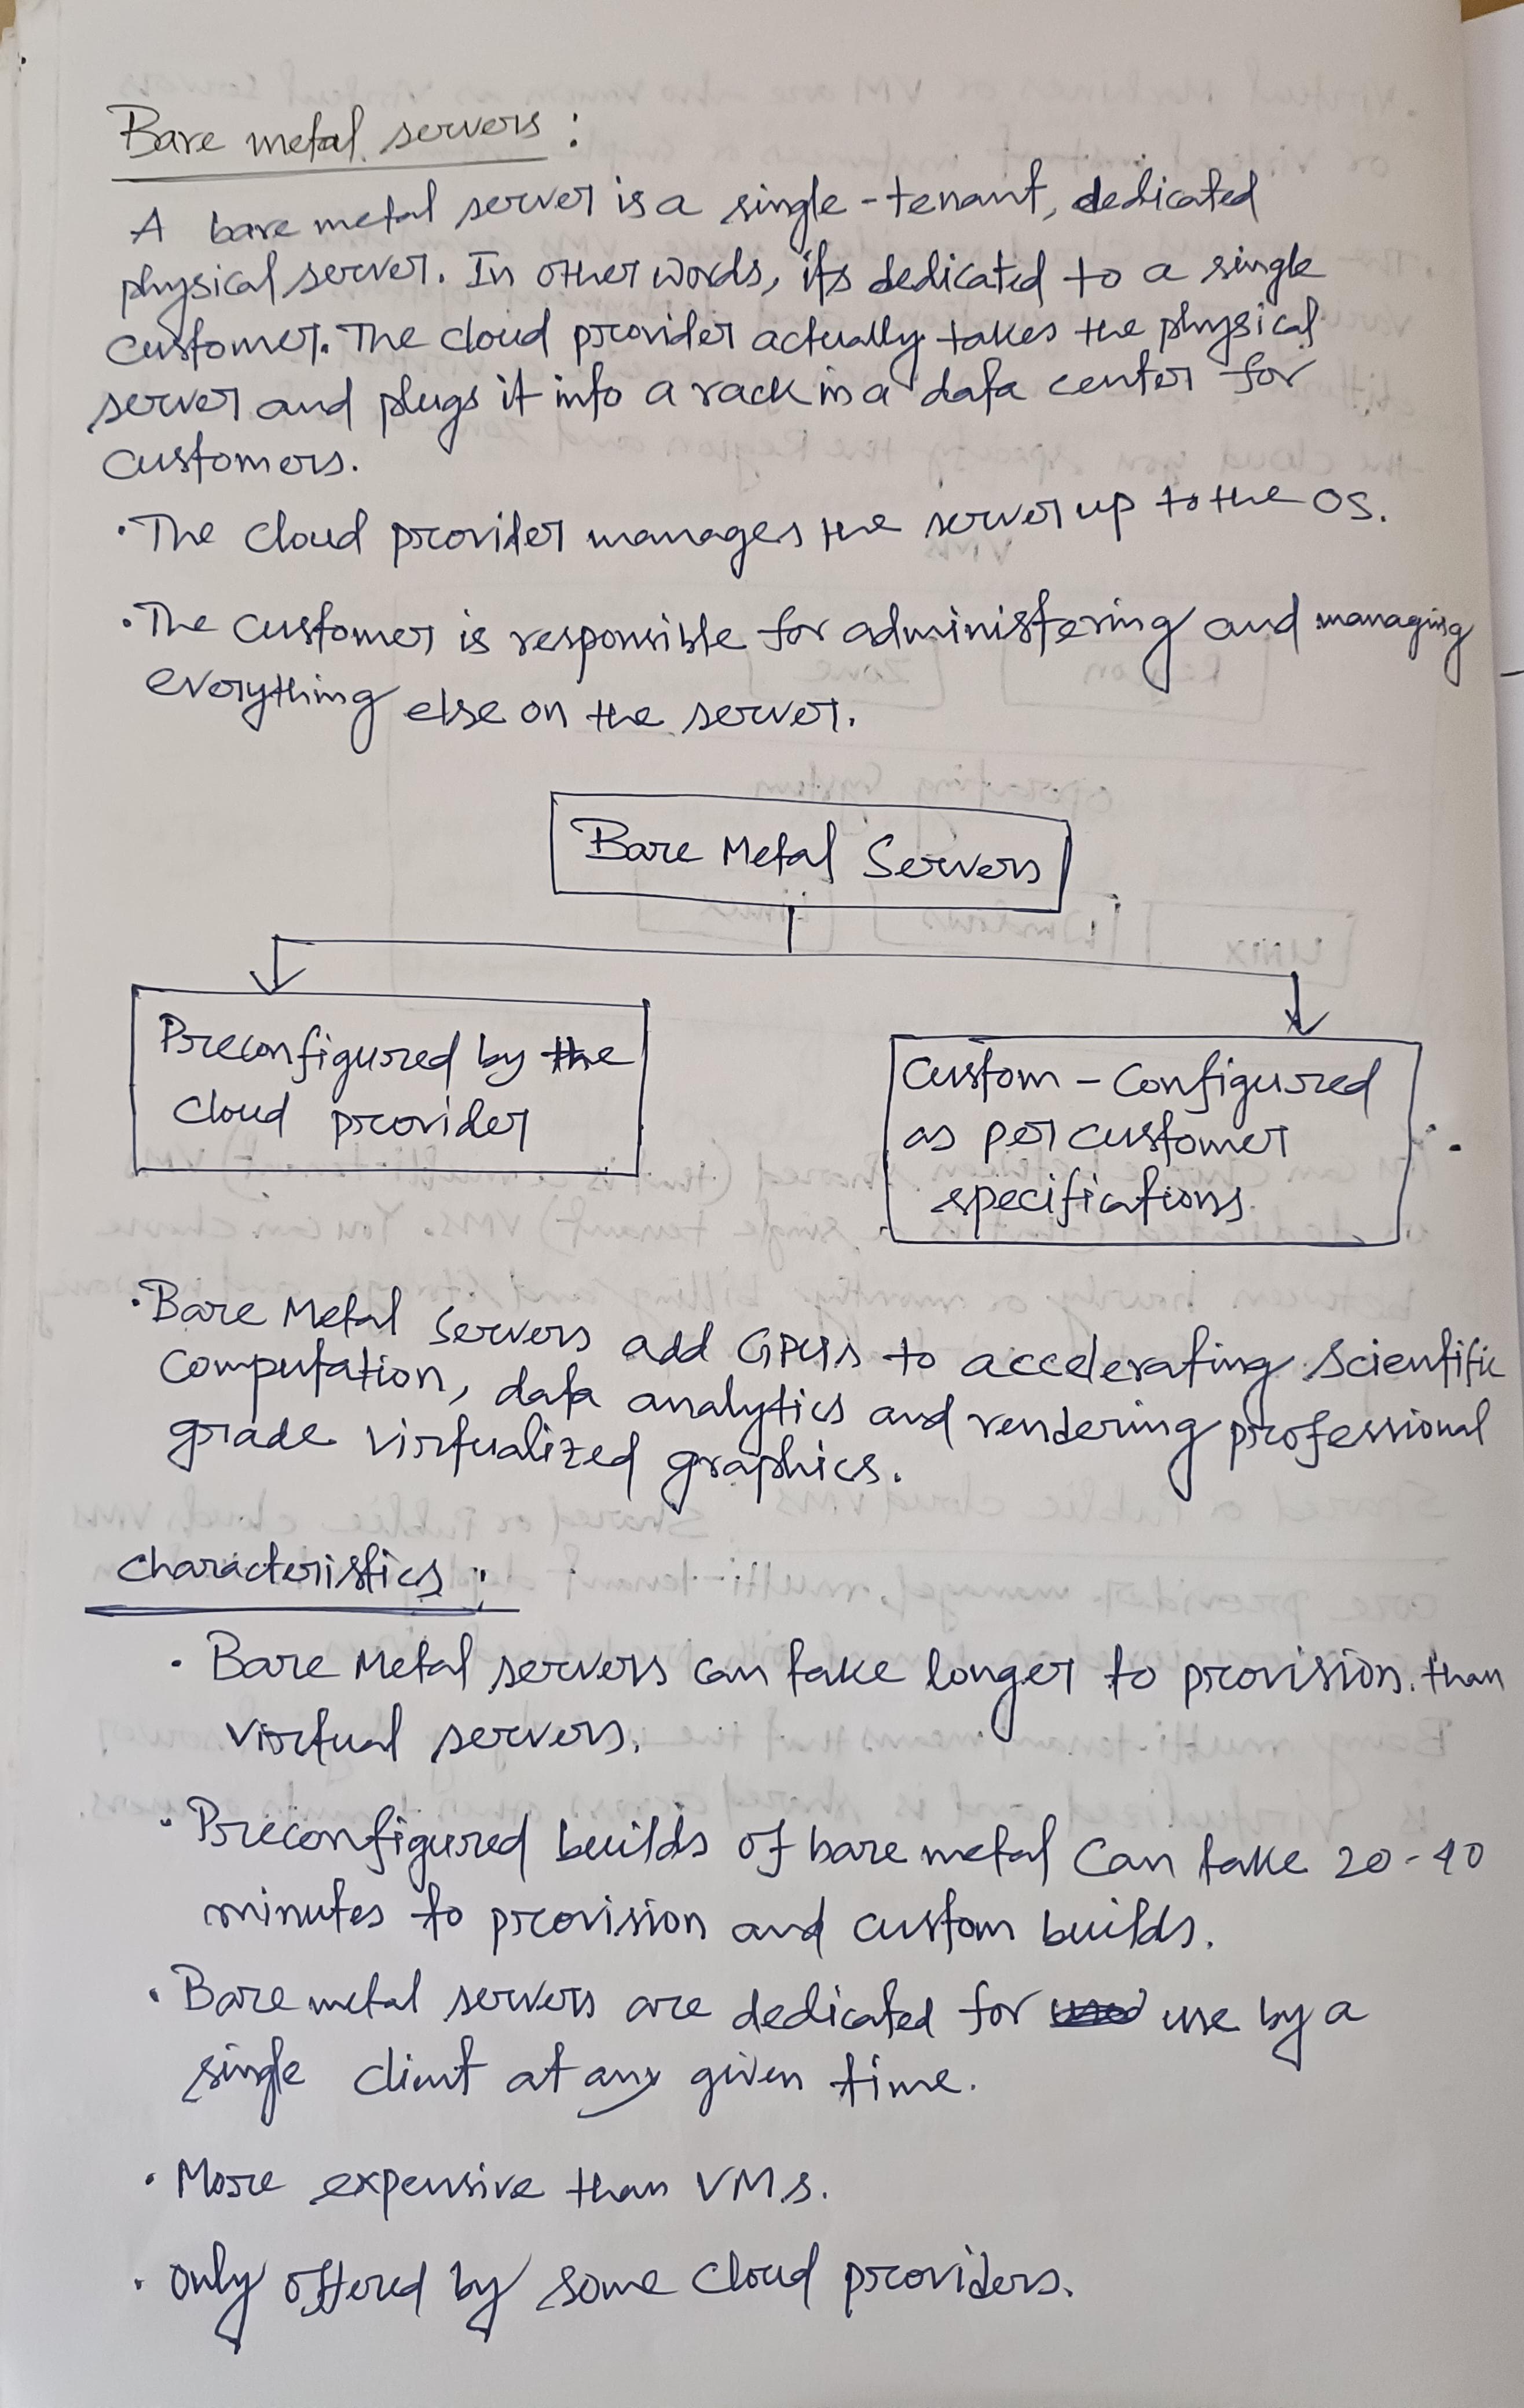 Bare metal servers :
A bare metal server is a single-tenant, dedicated
physical server. In other words, its dedicated to a single
customer. The cloud provider actually takes the physical
server and plugs it into a rack in a data center for
customers.
• The cloud provider manages the server up to the OS.
• The customer is responsible for administering and managing
everything else on the server.
Bare Metal Servers
Preconfigured by the
cloud provider
Custom - Configured
as per customer
specifications.
• Bare Metal Servers add GPUs to accelerating scientific
computation, data analytics and rendering professional
grade virtualized graphics.
Characteristics :
• Bare Metal servers can take longer to provision than
virtual servers.
• Preconfigured builds of bare metal can take 20-40
minutes to provision and custom builds.
• Bare metal servers are dedicated for use by a
single client at any given time.
• More expensive than VMs.
• only offered by some cloud providers.